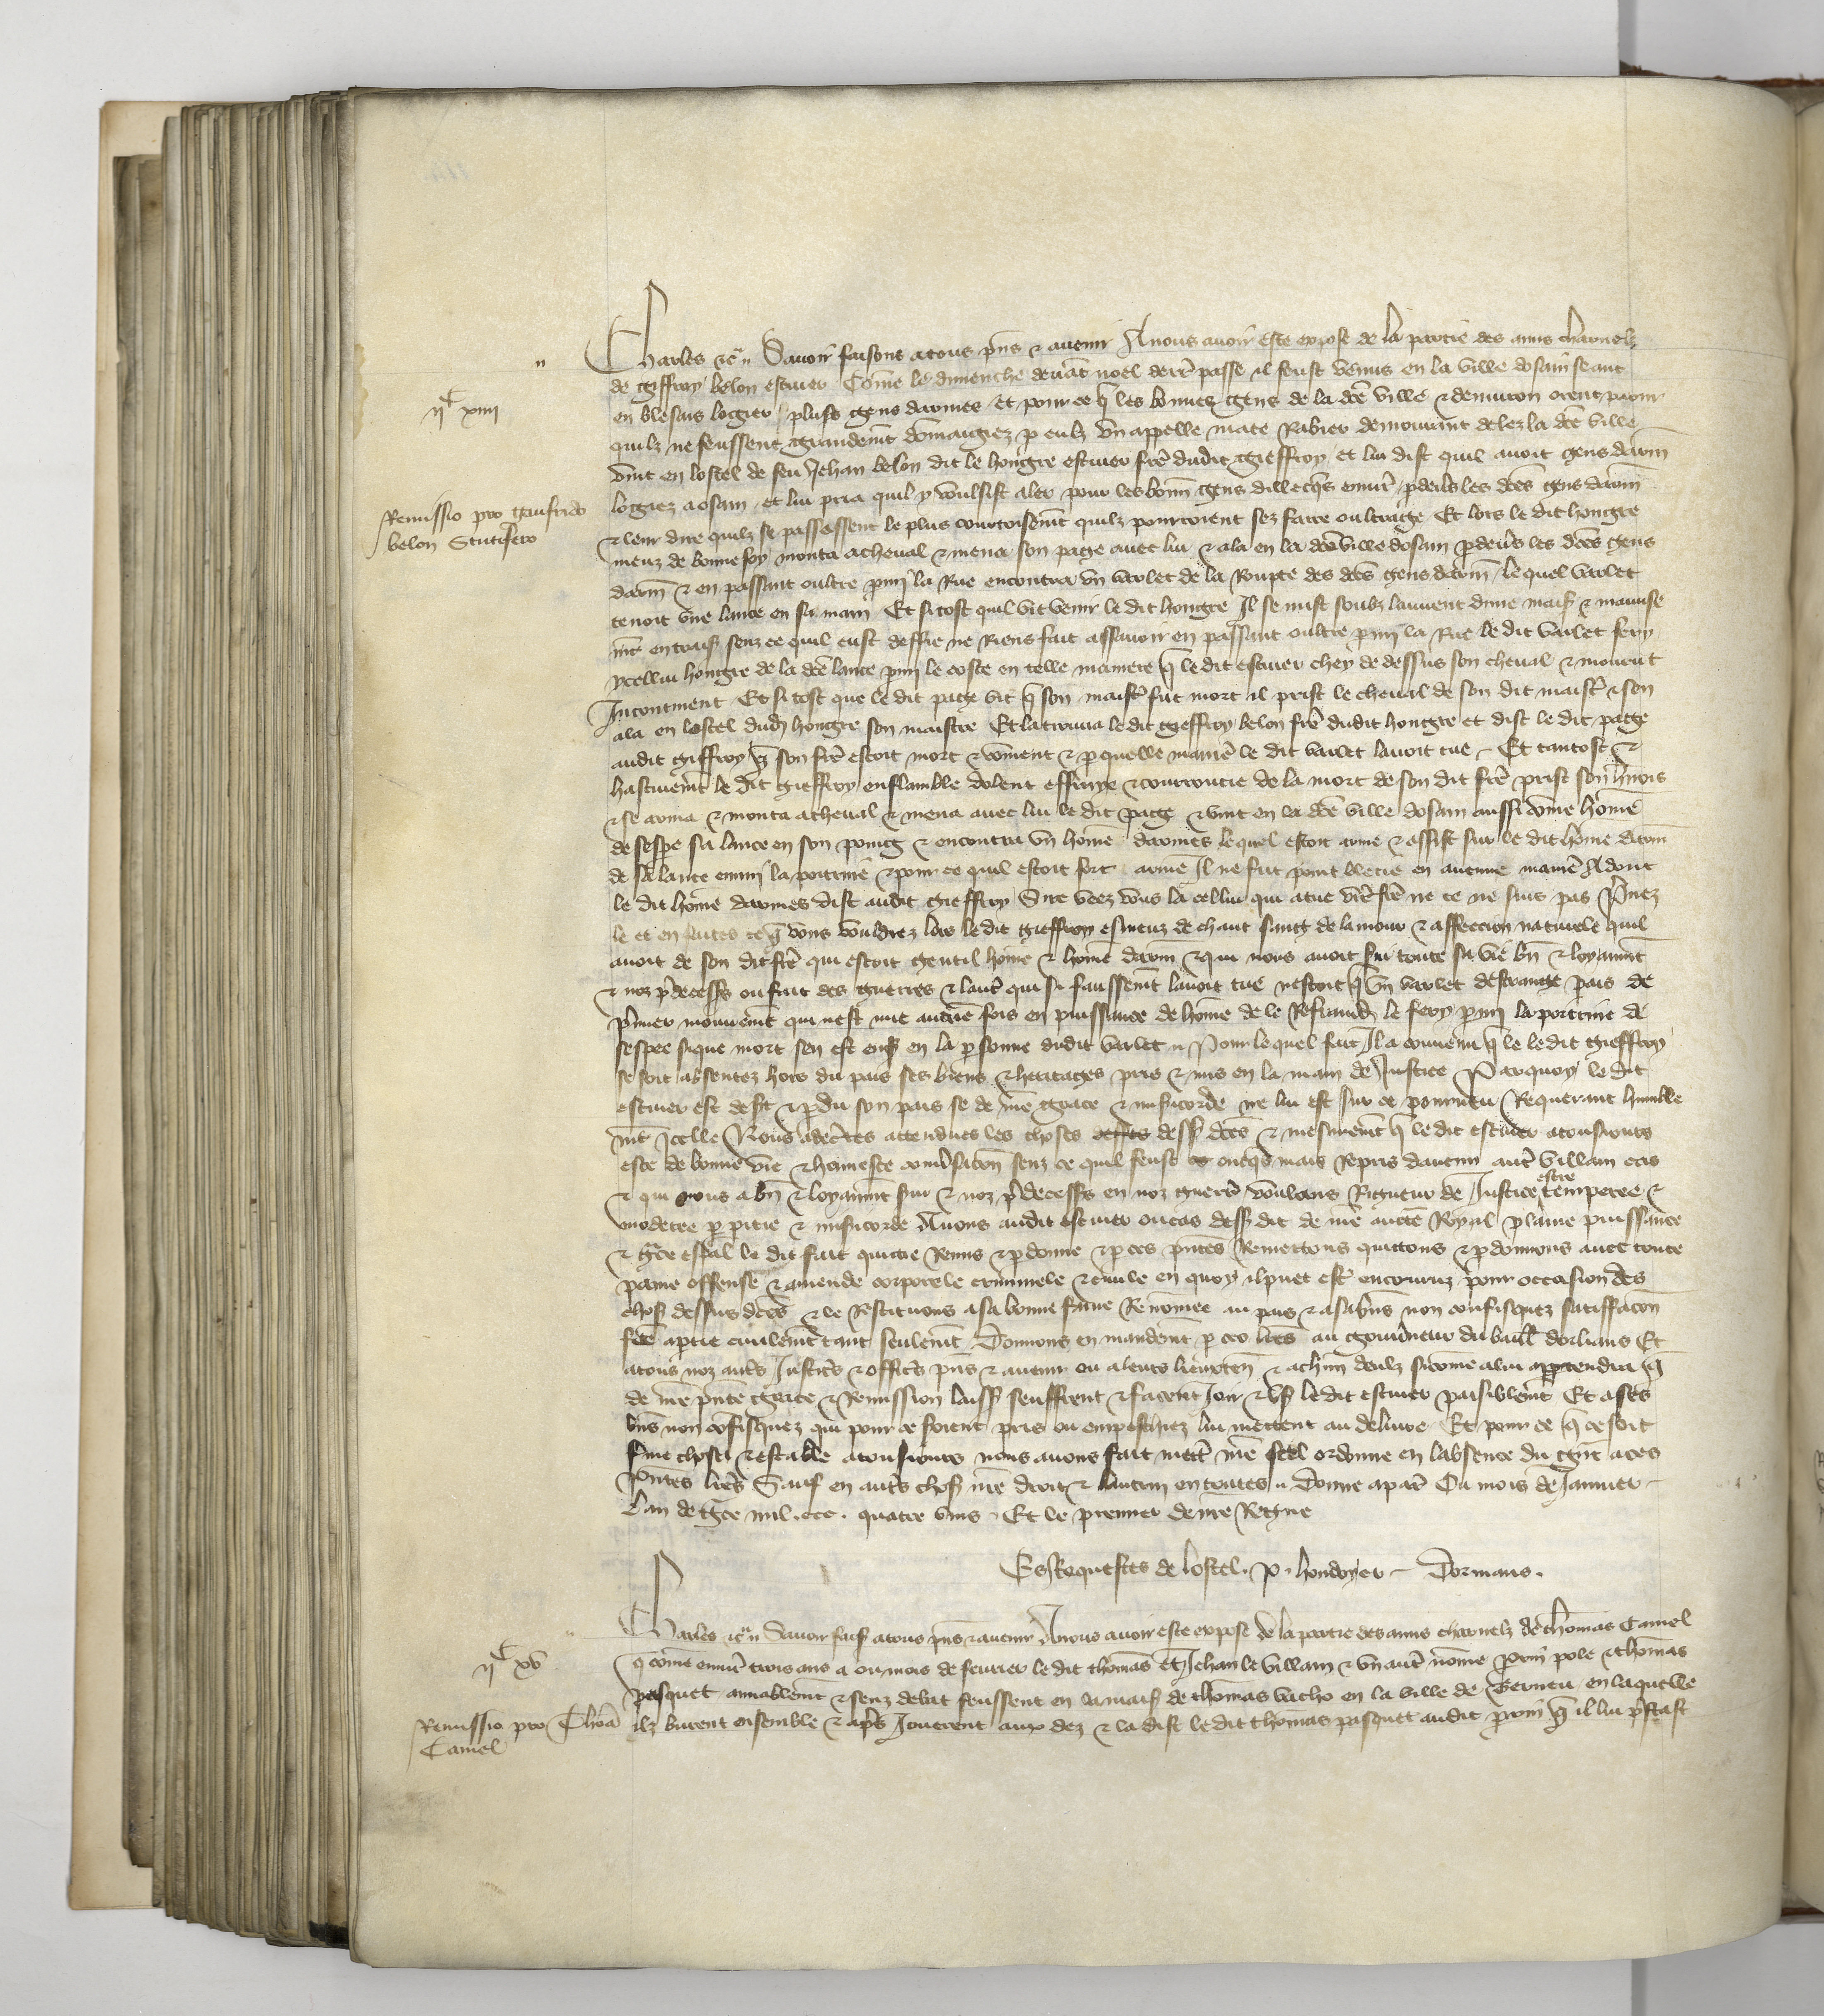 Charles etc. Savoir faisons a tous pns et avenir A nous avoir este expose de la partie des amis charnelz
de Giffroy belon escuier Come le dimenche devat noel derr passe il feust venus en la ville dosain seant
ijc xiiij
en blesois logier plus gens darmes Et pour ce q les bonnes gens de la dce ville et denviron orent paour
quilz ne feussent grandemt domaigiez p eulz un appelle mace Rabier demourant delez la dce ville
vint en lostel de feu Jehan belon dit le hongre escuier fre dudit Gieffroy et lui dist quil avoit gens darm
Remissio pro Gaufrido
belon Scutifero
logiez a osain et lui pria quil y voulsist aler pour les bonn gens dillecqs envir pdevs les dces gens darm
et leur dire quilz se passessent le plus courtoisemt quilz pourroient sez faire oultrage Et lors le dit hongre
meuz de bonne foy monta a cheval et mena son page avec lui et ala en la dce ville dosain pdevs les dces gens
darm et en passant oultre pmi la Rue encontra un varlet de la Roupte des dces gens darm lequel varlet
tenoit une lance en sa main Et si tost quil vit venir le dit hongre Il se mist soubz lauvent dune mais et mauvise
mt en trais senz ce quil eust deffie ne Riens fait assavoir en passant oultre pmi la Rue le dit varlet fery
ycellui hongre de la dce lance pmi le coste en telle maniere q le dit escuier chey de dessus son cheval et mourut
Incontinent Et si tost que le dit page vit q son maistr fut mort il prist le cheval de son dit maistr et sen
ala en lostel dud hongre son maistre Et la trouva le dit Gieffroy belon fre dudit hongre et dist le dit page
audit Giffroy q son fre estoit mort et coment et p quelle manie le dit varlet lavoit tue Et tantost et
hastivemt le dit Gieffroy enflamble dolent effraye et courroucie de la mort de son dit fre prist son hnois
et se arma et monta a cheval et mena avec lui le dit page et vint en la dce ville dosain aussi come home
desespe sa lance en son poing et encontra un home darmes lequel estoit arme et assist sur le dit home darm
de sa lance emmi la poitrine et pour ce quil estoit fort arme Il ne fut point blecie en aucune manie Adont
le dit home darmes dist audit Gieffroy Sire veez vous la cellui qui a tue vre fre ne ce ne suis pas Prnez
le et en faites ce q vous vouldrez lors le dit Gieffroy esmeuz de chaut sang de lamour et affeccion naturele quil
avoit de son dit fre qui estoit gentil home et home darm et qui nous avoit svi toute sa vie bn et loyaumt
et noz pdecesss ou fait des guerres et lautr qui si faussemt lavoit tue nestoit q un varlet destrange pais de
pmier mouvemt qui nest mie aucune fois en puissance de home de le Refraind le fery pmi la poitrine de
sespee si que mort sen est ens en la psonne dudit varlet Pour lequel fait Il a convenu q le ledit Gieffroy
se soit absentez hors du pais ses biens et heritages pris et mis en la main de Justice Parquoy le dit
escuier est desert et pdu son pais se de nre grace et misicorde ne lui est sur ce pourveu Requerant humble
mt Icelle Nous adecrtes attendues les choses dess dces et mesmemt q le dit escuier a tousiours
este de bonne vie et honneste convsacon senz ce quil feust oncqs mais Repris daucun autr villain cas
et qui nous a bn et loyaumt svi et noz pdecesss en noz guerrs voulans Rigueur de Justice estre temperee et
moderee p pitie et misicorde Avons audit escuier ou cas dess dit de nre aucte Royal plaine puissance
et grce espal le dit fait quictie Remis et pdonne et p ces pntes Remettons quittons et pdonnons avec toute
paine offense et amende corporele criminele et civile en quoy il puet estr encouruz pour occasion des
chos dessus dces et le Restituons a sa bonne fame Renomee au pais et a sa bns non confisquez satisfacon
fce a ptie civilemt tant seulemt Donnons en mandemt p ces lres au gouvneur du baill dorlians Et
a tous noz autrs Justicrs et officrs pns et avenir ou a leurs lieuxten et a chun deulz sicome a lui appartendra q
de nre pnte grace et Remission laiss seuffrent et facent Joir et us le dit escuier paisiblemt Et a ses
bns non cofisquez qui pour ce soient pris ou empeschiez lui mettent au delivre Et pour ce q ce soit
fme chose et estable a tousiours nous avons fait mettr nre seel ordonne en labsence du grt a ces
pntes lres Sauf en autrs chos nre droit et lautrui en toutes Donne a pars Ou mois de Janvier
Lan de grce mil ccc quatre vins Et le premier de nre Regne
Es Requestes de lostel. P. hondoyer Dormans.
Charles etc Savoir fais a tous pns et avenir A nous avoir este expose de la partie des amis charnelz de thomas Camel
ijc xv
q come envir trois ans a ou mois de fevrier le dit thomas Et Jehan le villain et un autr nome prin pole et thomas
pasquet amiablemt et senz debat feussent en la mais de thomas vacho en la ville de Verneu en laquelle
Remissio pro Thoa
Camel
ilz burent ensemble et aprs Jouerent aux dez et la dist le dit thomas pasquet audit prin q il lui prstast